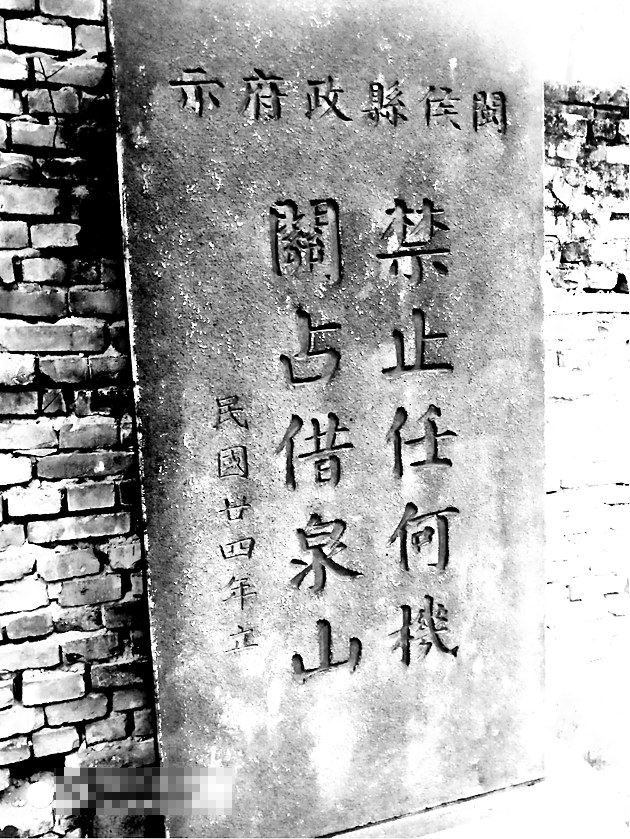 閩侯縣政府示
禁止任何機
關占借泉山
民國廿四年立